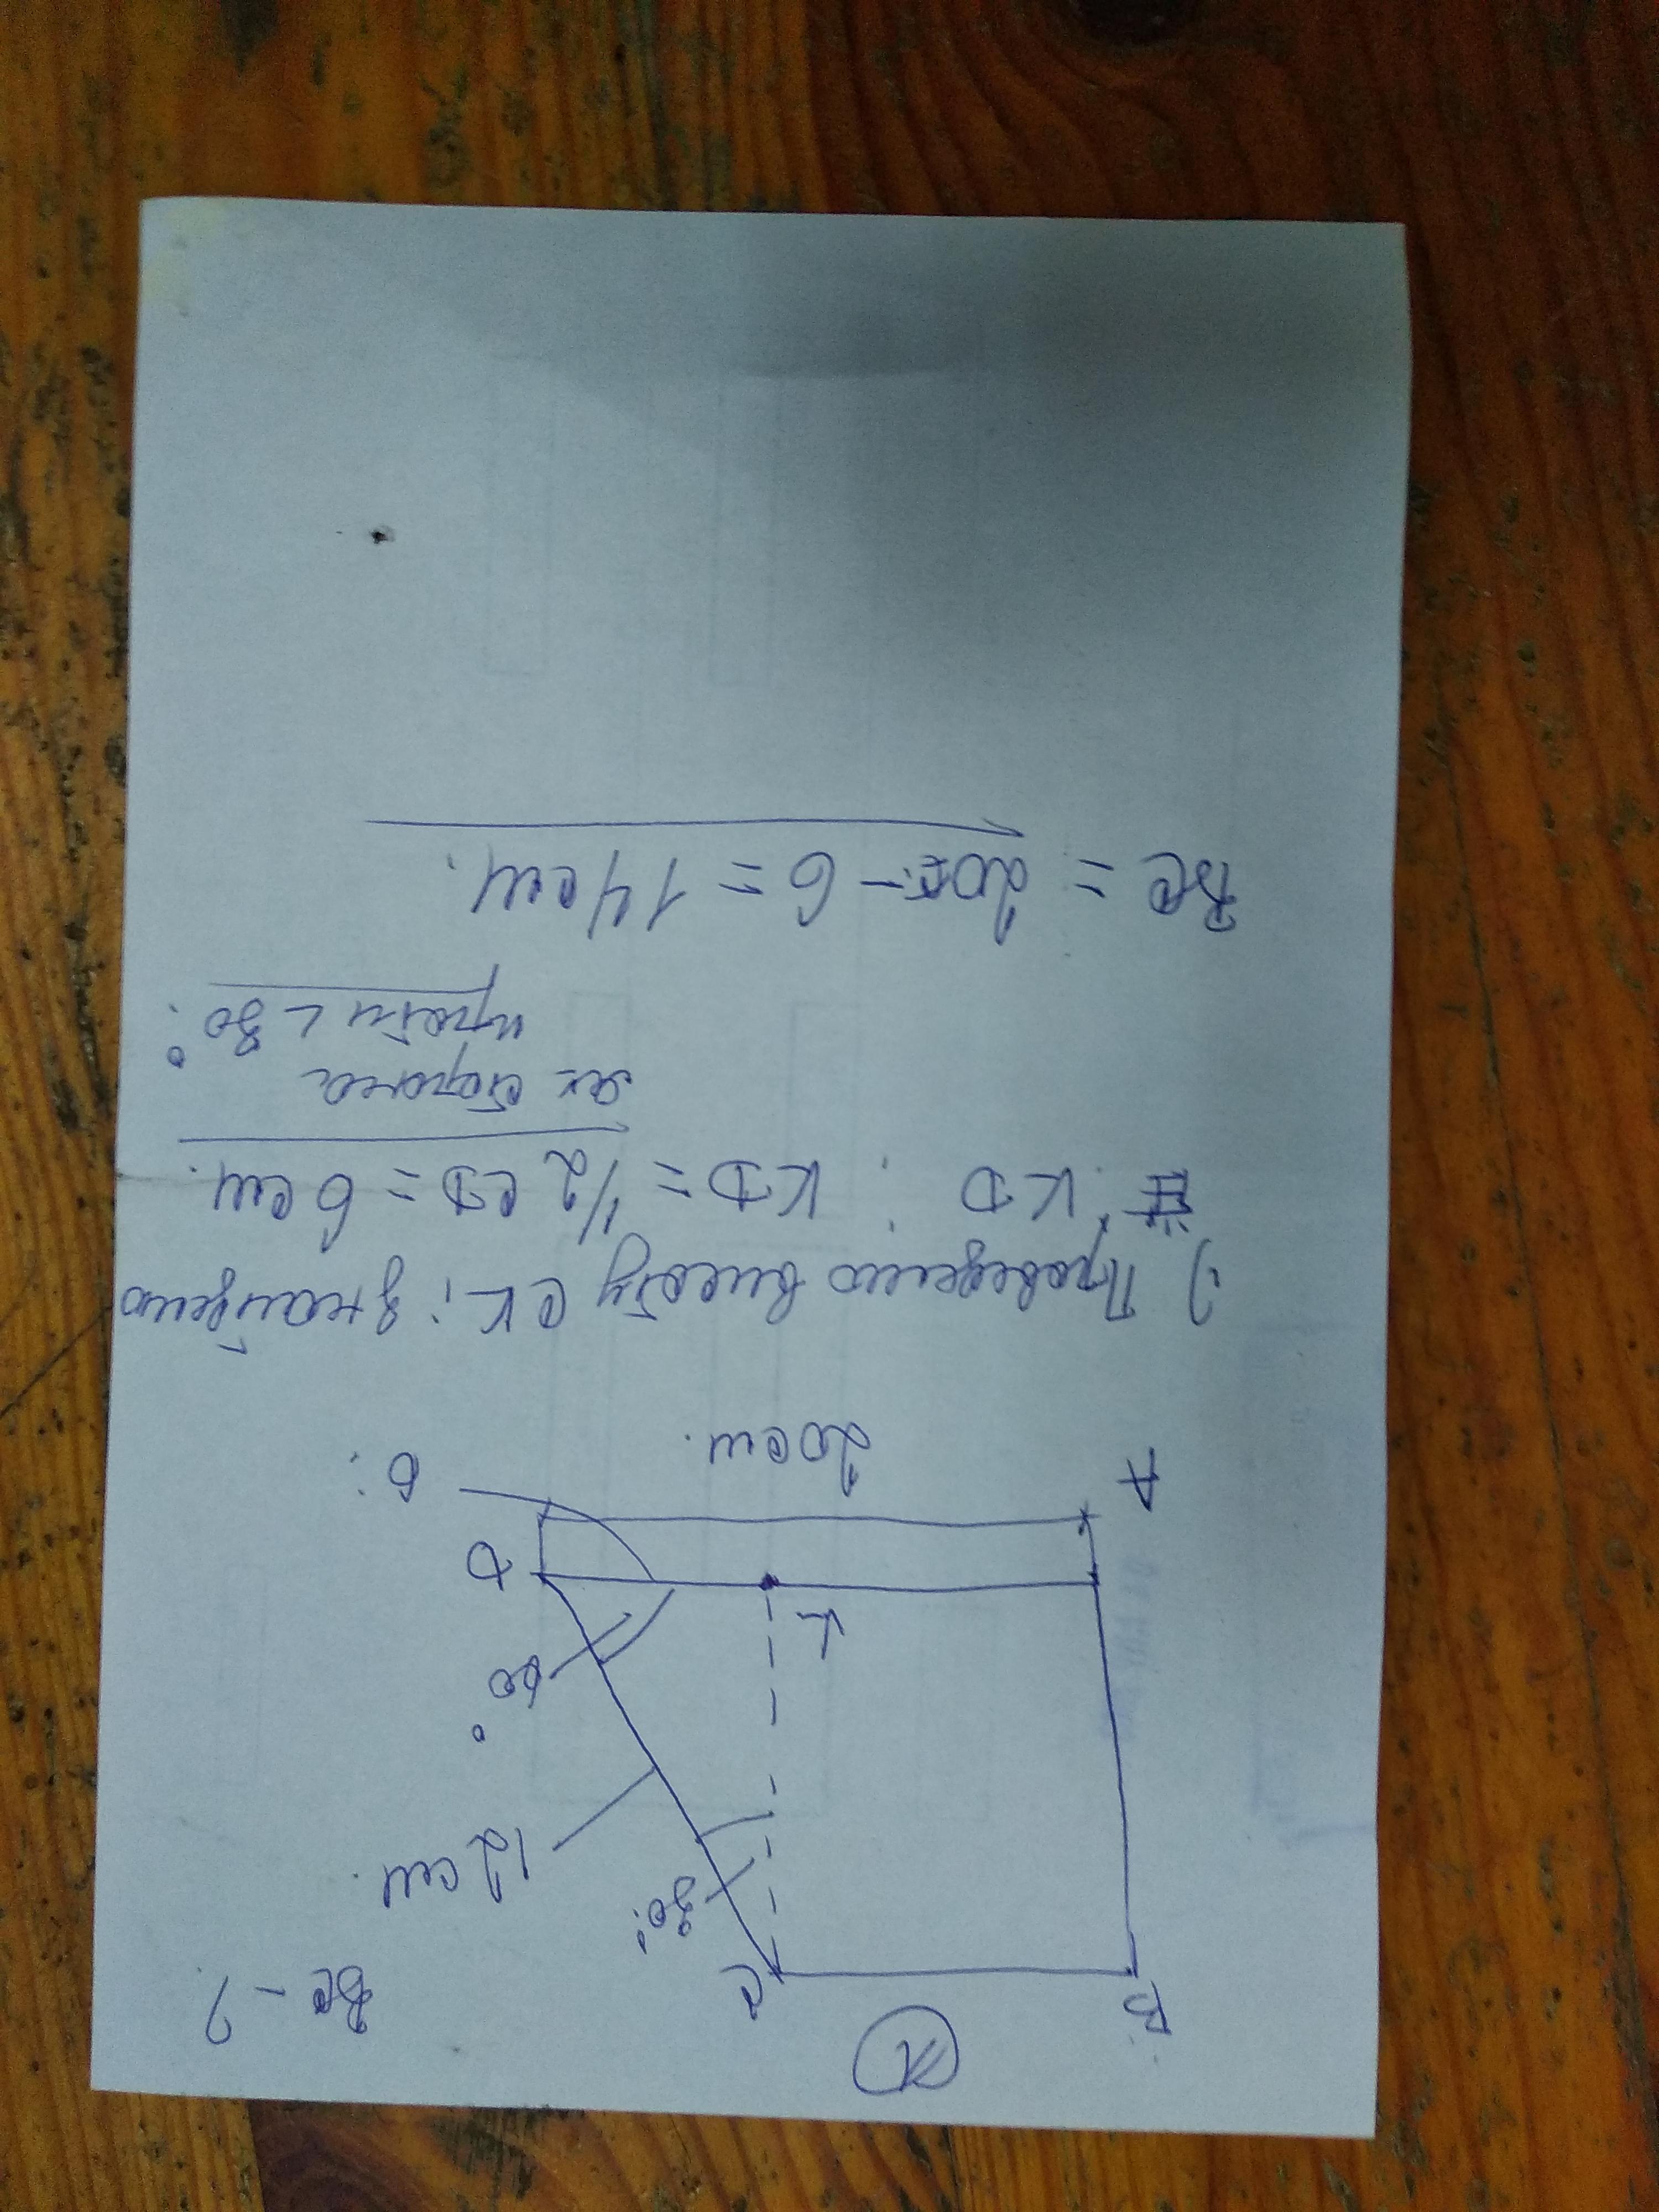 BC - ?
B
C
30°
12 см.
60°
K
D
A
20 см.
O
1) Проведемо висоту CK; знайдемо
KD; KD = 1/2 CD = 6 см.
як сторона
проти < 30°.
BC = 20 - 6 = 14 см.